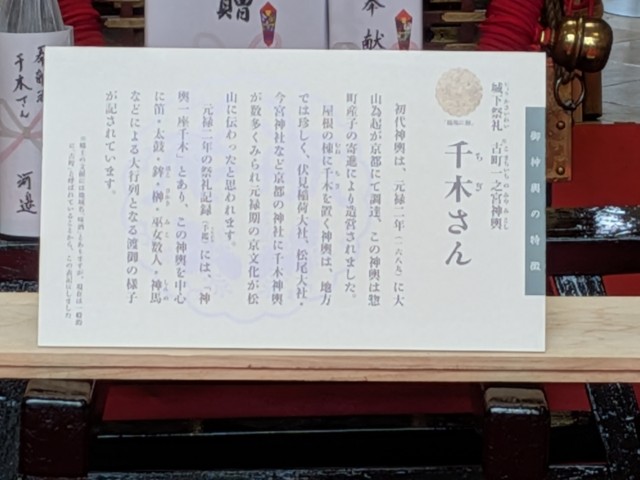 贈
奉献
千木さん
河邉
御神輿の特徴
城下祭礼 古町一之宮神輿
千木さん
ちぎ
初代神輿は、元禄二年(一六八九)に大
山為起が京都にて調達。この神輿は惣
町産子の寄進により造営されました。
屋根の棟に千木を置く神輿は、地方
では珍しく、伏見稲荷大社、松尾大社・
今宮神社など京都の神社に千木神輿
が数多くみられ元禄期の京文化が松
山に伝わったと思われます。
元禄二年の祭礼記録には、「神
輿一座千木」とあり、この神輿を中心
に笛・太鼓・鉾・榊・巫女数人・神馬
などによる大行列となる渡御の様子
が記されています。